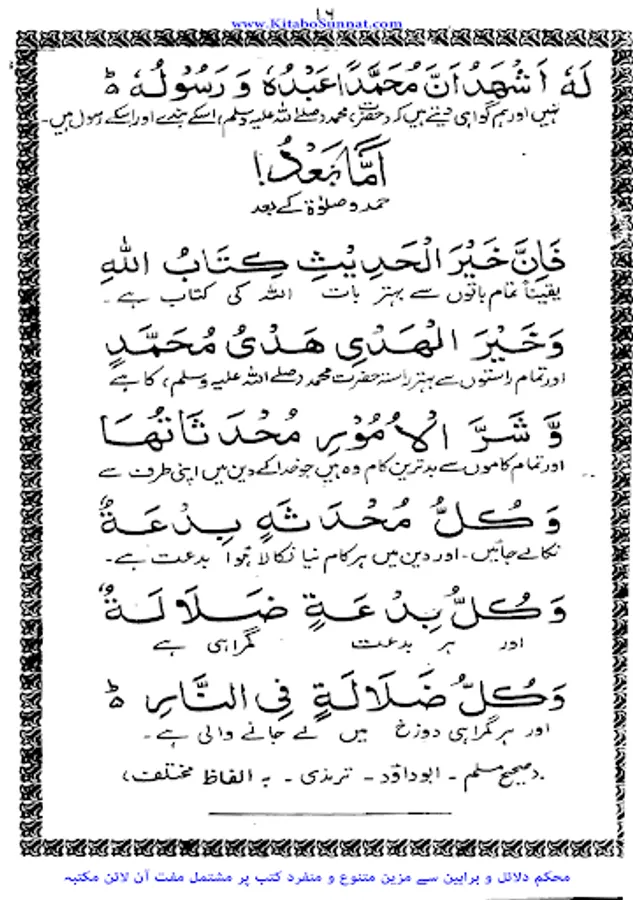 ۱٦
www.KitaboSunnat.com
لَهٗ اَشْهَدُ اَنَّ مُحَمَّدًا عَبْدُهٗ وَ رَسُوْلُهٗ ط
نہیں اور ہم گواہی دیتے ہیں کہ (حضرت) محمد (صلے اللہ علیہ وسلم) اسکے بندے اور اسکے رسول ہیں۔
اَمَّا بَعْدُ!
حمد و صلوٰۃ کے بعد
فَاِنَّ خَيْرَ الْحَدِيْثِ كِتَابُ اللهِ
یقیناً تمام باتوں سے بہتر بات اللہ کی کتاب ہے۔
وَخَيْرَ الْهَدْيِ هَدْيُ مُحَمَّدٍ
اور تمام راستوں سے بہتر راستہ حضرت محمد (صلے اللہ علیہ وسلم) کا ہے
وَّ شَرَّ الْاُمُوْرِ مُحْدَثَاتُهَا
اور تمام کاموں سے بدترین کام وہ ہیں جو خدا کے دین میں اپنی طرف سے
وَكُلُّ مُحْدَثَةٍ بِدْعَةٌ
نکالے جائیں۔ اور دین میں ہر کام نیا نکالا ہوا بدعت ہے۔
وَكُلُّ بِدْعَةٍ ضَلَالَةٌ
اور ہر بدعت گمراہی ہے
وَكُلُّ ضَلَالَةٍ فِي النَّارِ ط
اور ہر گمراہی دوزخ میں لے جانے والی ہے۔
(صحیح مسلم۔ ابوداؤد۔ ترمذی۔ بہ الفاظ مختلف)
محکم دلائل و براہین سے مزین متنوع و منفرد کتب پر مشتمل مفت آن لائن مکتبہ